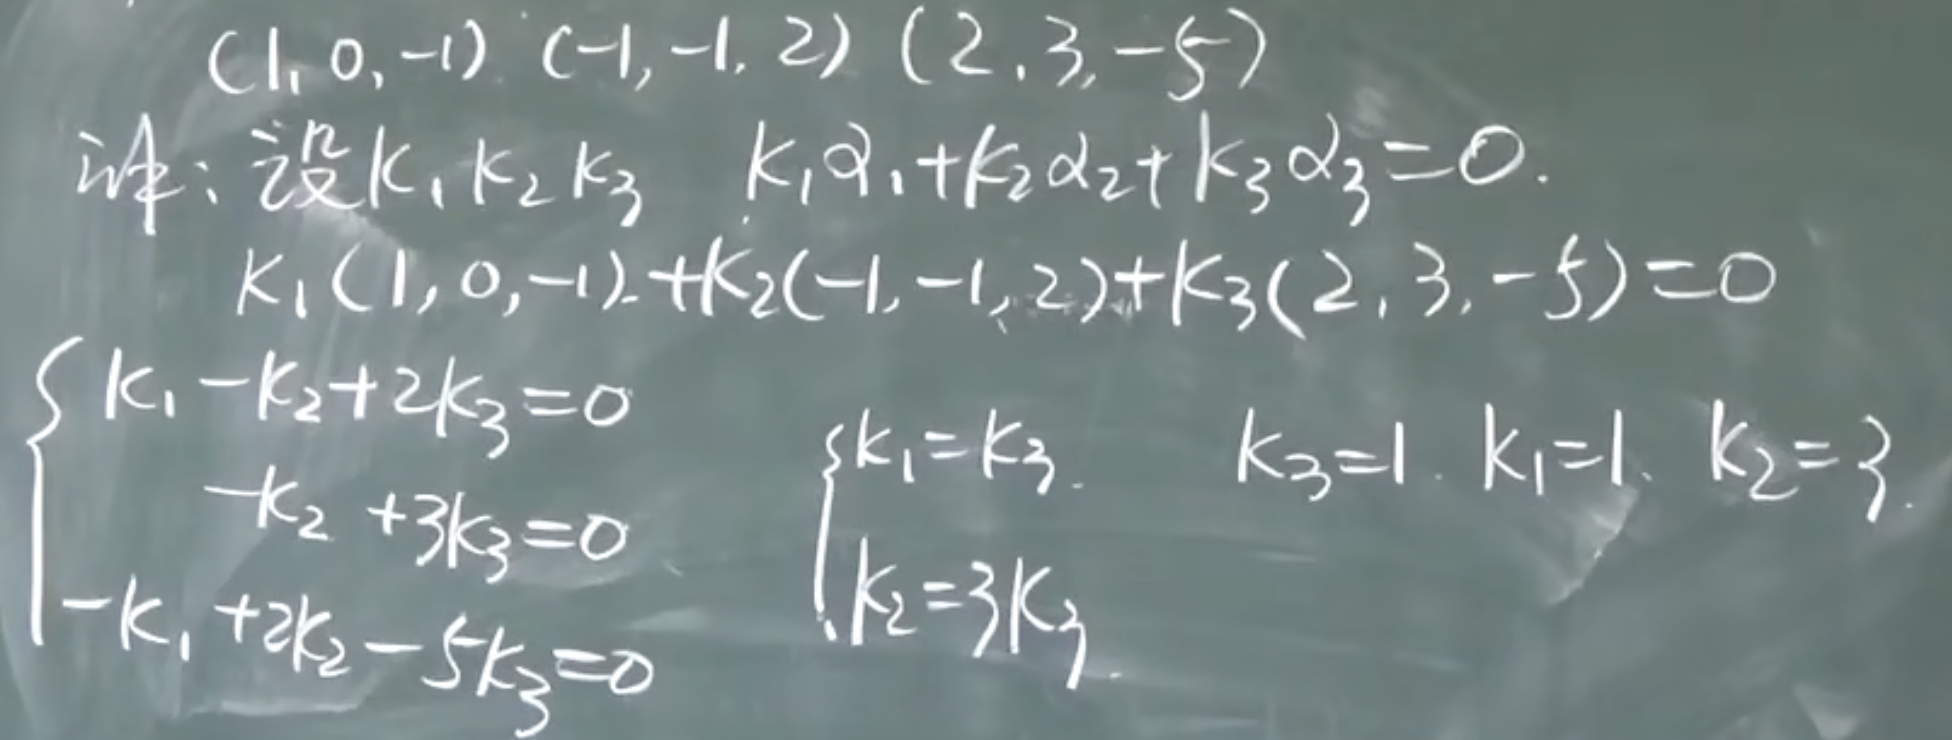 (1, 0, -1) (-1, -1, 2) (2, 3, -5)
证: 设 K₁ K₂ K₃ K₁α₁+K₂α₂+K₃α₃=0.
K₁(1, 0, -1)+K₂(-1, -1, 2)+K₃(2, 3, -5)=0
{ K₁-K₂+2K₃=0
-K₂+3K₃=0
-K₁+2K₂-5K₃=0
{ K₁=K₃.
K₂=3K₃.
K₃=1. K₁=1. K₂=3.